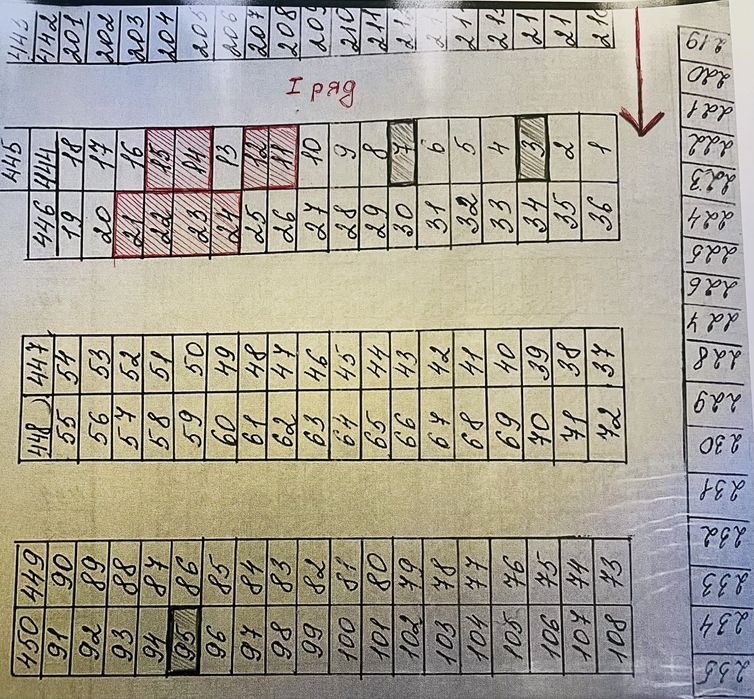 443 442 201 202 203 204 205 206 207 208 209 210 211
I ряд
445 444 18 17 16 15 14 13 12 11 10 9 8 7 6 5 4 3 2 1
446 19 20 21 22 23 24 25 26 27 28 29 30 31 32 33 34 35 36
447 54 53 52 51 50 49 48 47 46 45 44 43 42 41 40 39 38 37
448 55 56 57 58 59 60 61 62 63 64 65 66 67 68 69 70 71 72
449 90 89 88 87 86 85 84 83 82 81 80 79 78 77 76 75 74 73
450 91 92 93 94 95 96 97 98 99 100 101 102 103 104 105 106 107 108
219
220
221
222
223
224
225
226
227
228
229
230
231
232
233
234
235